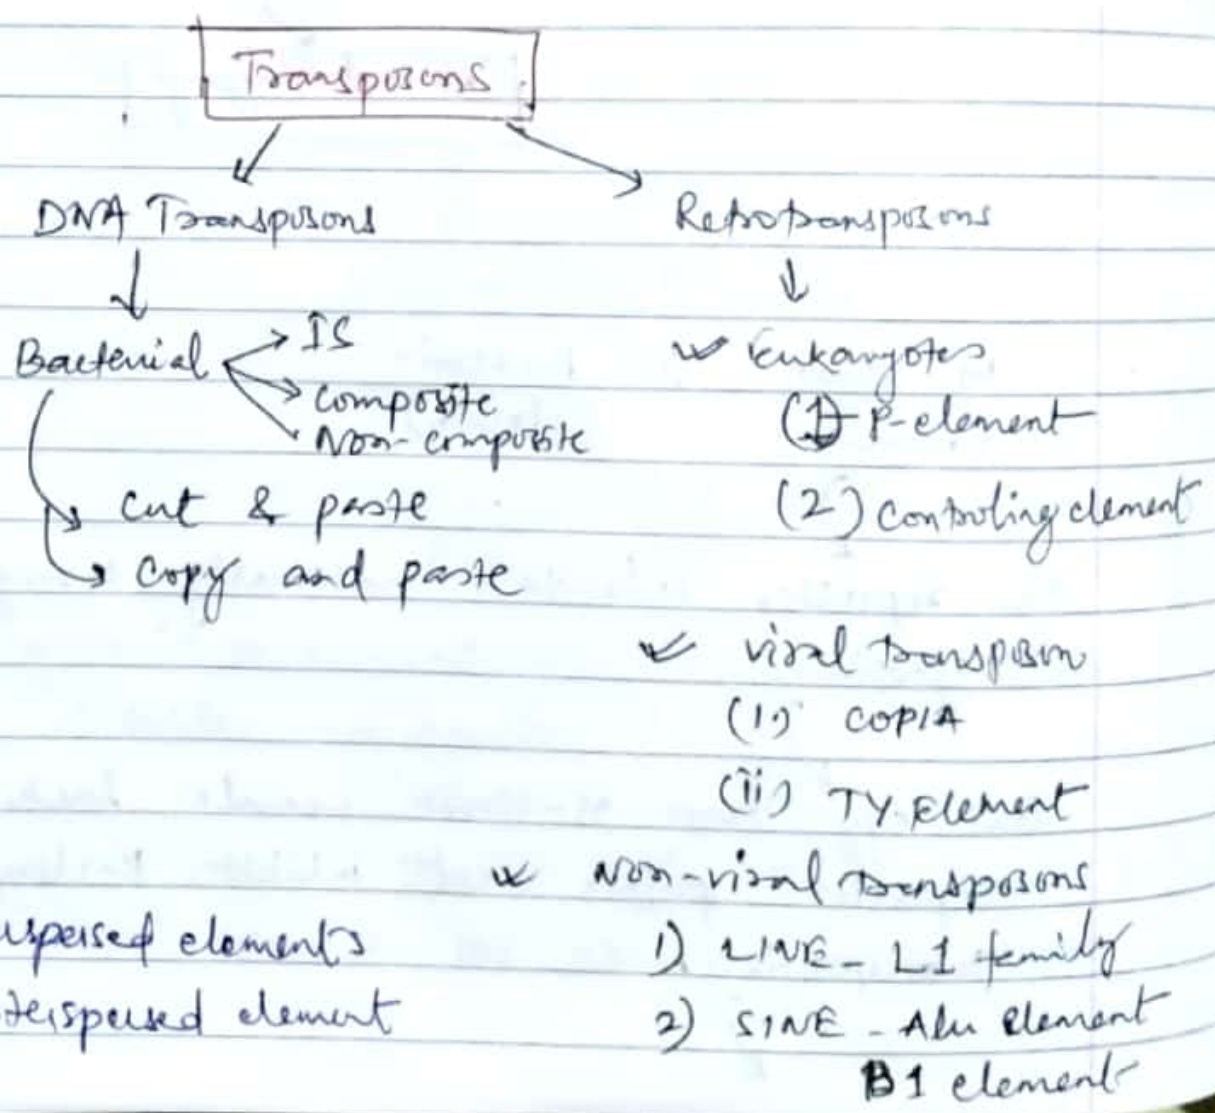 Transposons
DNA Transposons
Retrotransposons
Bacterial
IS
composite
Non-composite
cut & paste
copy and paste
Eukaryotes
(1) P-element
(2) Controling element
viral transposon
(1.) COPIA
(ii) TY Element
Non-viral transposons
1) LINE - L1 family
2) SINE - Alu Element
B1 element
elements
element